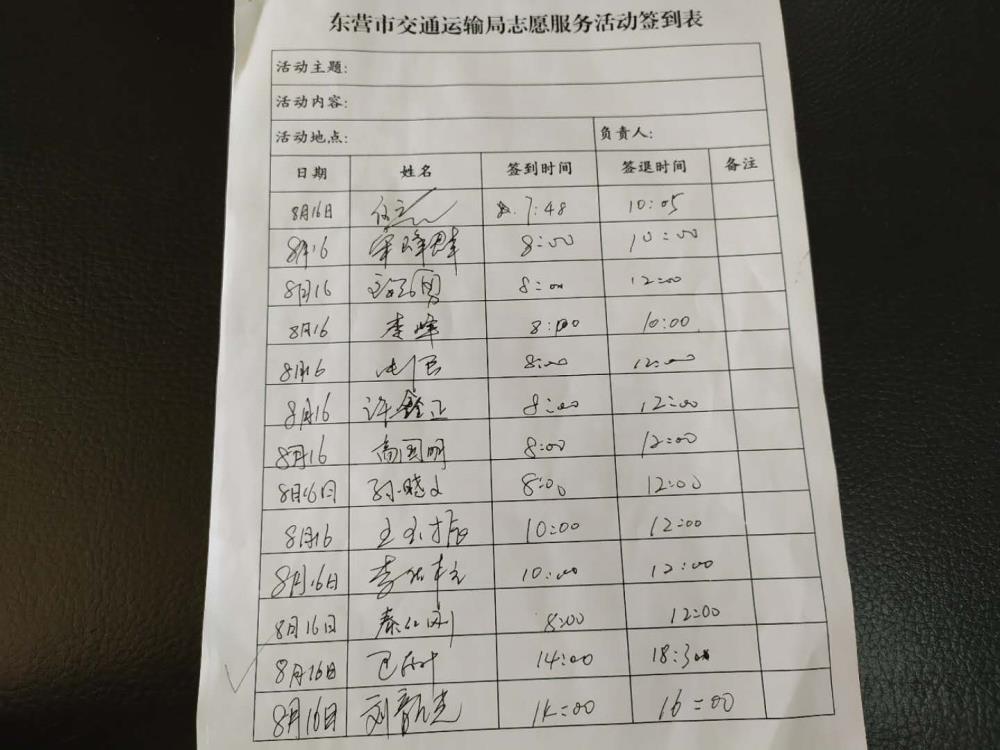 东营市交通运输局志愿服务活动签到表
活动主题:
活动内容:
活动地点: 负责人:
日期 姓名 签到时间 签退时间 备注
8月16日 7:48 10:05
8月16 8:00 10:00
8月16 8:00 12:00
8月16 李峰 8:00 10:00
8月16 8:00 12:00
8月16 许鑫正 8:00 12:00
8月16 高国明 8:00 12:00
8月16日 孙晓文 8:00 12:00
8月16 王玉振 10:00 12:00
8月16日 10:00 12:00
8月16日 秦仁刚 8:00 12:00
8月16日 14:00 18:30
8月16日 16:00